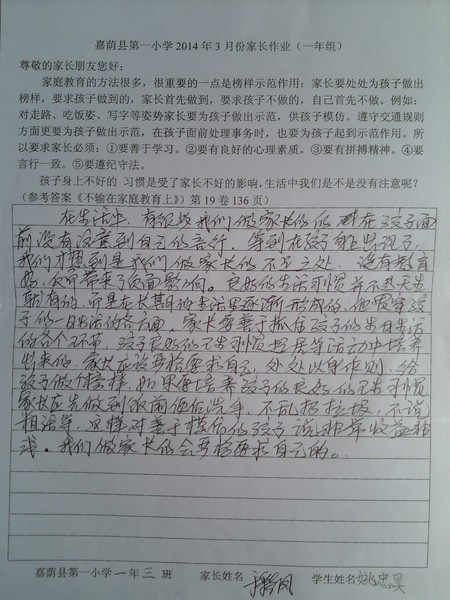 嘉荫县第一小学2014年3月份家长作业(一年组)
尊敬的家长朋友您好:
家庭教育的方法很多,很重要的一点是榜样示范作用:家长要处处为孩子做出
榜样,要求孩子做到的,家长首先做到,要求孩子不做的,自己首先不做。例如:
对走路、吃饭姿、写字等姿势家长要为孩子做出示范,供孩子模仿。遵守交通规则
方面更要为孩子做出示范,在孩子面前处理事务时,也要为孩子起到示范作用。所
以要求家长必须:①要善于学习。②要有良好的心理素质。③要有拼搏精神。④要
言行一致。⑤要遵纪守法。
孩子身上不好的 习惯是受了家长不好的影响,生活中我们是不是没有注意呢?
(参考答案《不输在家庭教育上》)第19卷136页)
在生活中,有很多我们做家长的 在孩子面
前没有注意到自己的言行,等到在孩子身上出现了,
我们才想到是我们做家长的不足之处,没有教育
好,给 带来了负面影响。良好的生活习惯并不是天生
就有的,而是在长期的生活里逐渐形成的,他贯穿孩
子的一日生活的各方面。家长要善于抓住孩子的当日生活
的各个环节,孩子良好的卫生习惯 是 活动中培养
出来的。家长应该严格要求自己,处处以身作则,给
孩子做个榜样,如果要培养孩子的良好的卫生习惯
家长应先做到饭前便后洗手,不乱扔垃圾,不说
粗话等,这样对善于模仿的孩子说非常收益非
浅。我们做家长的会严格要求自己的。
嘉荫县第一小学一年三班 家长姓名 学生姓名姚忠昊